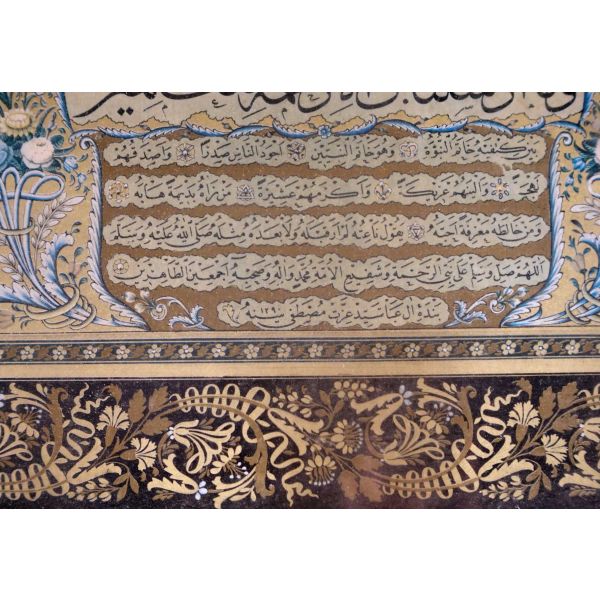 بين كتفيه خاتم النبوة وهو خاتم النبيين اجود الناس صدرا واصدقهم
لهجة والينهم عريكة واكرمهم عشيرة من رآه بديهة هابه
ومن خالطه معرفة احبه يقول ناعته لم ار قبله ولا بعده مثله صلى الله عليه وسلم
اللهم صل وسلم على نبي الرحمة وشفيع الامة محمد وآله وصحبه اجمعين الطاهرين
بنده آل عبا سيد عزت مصطفى سنه ١٢٩٠